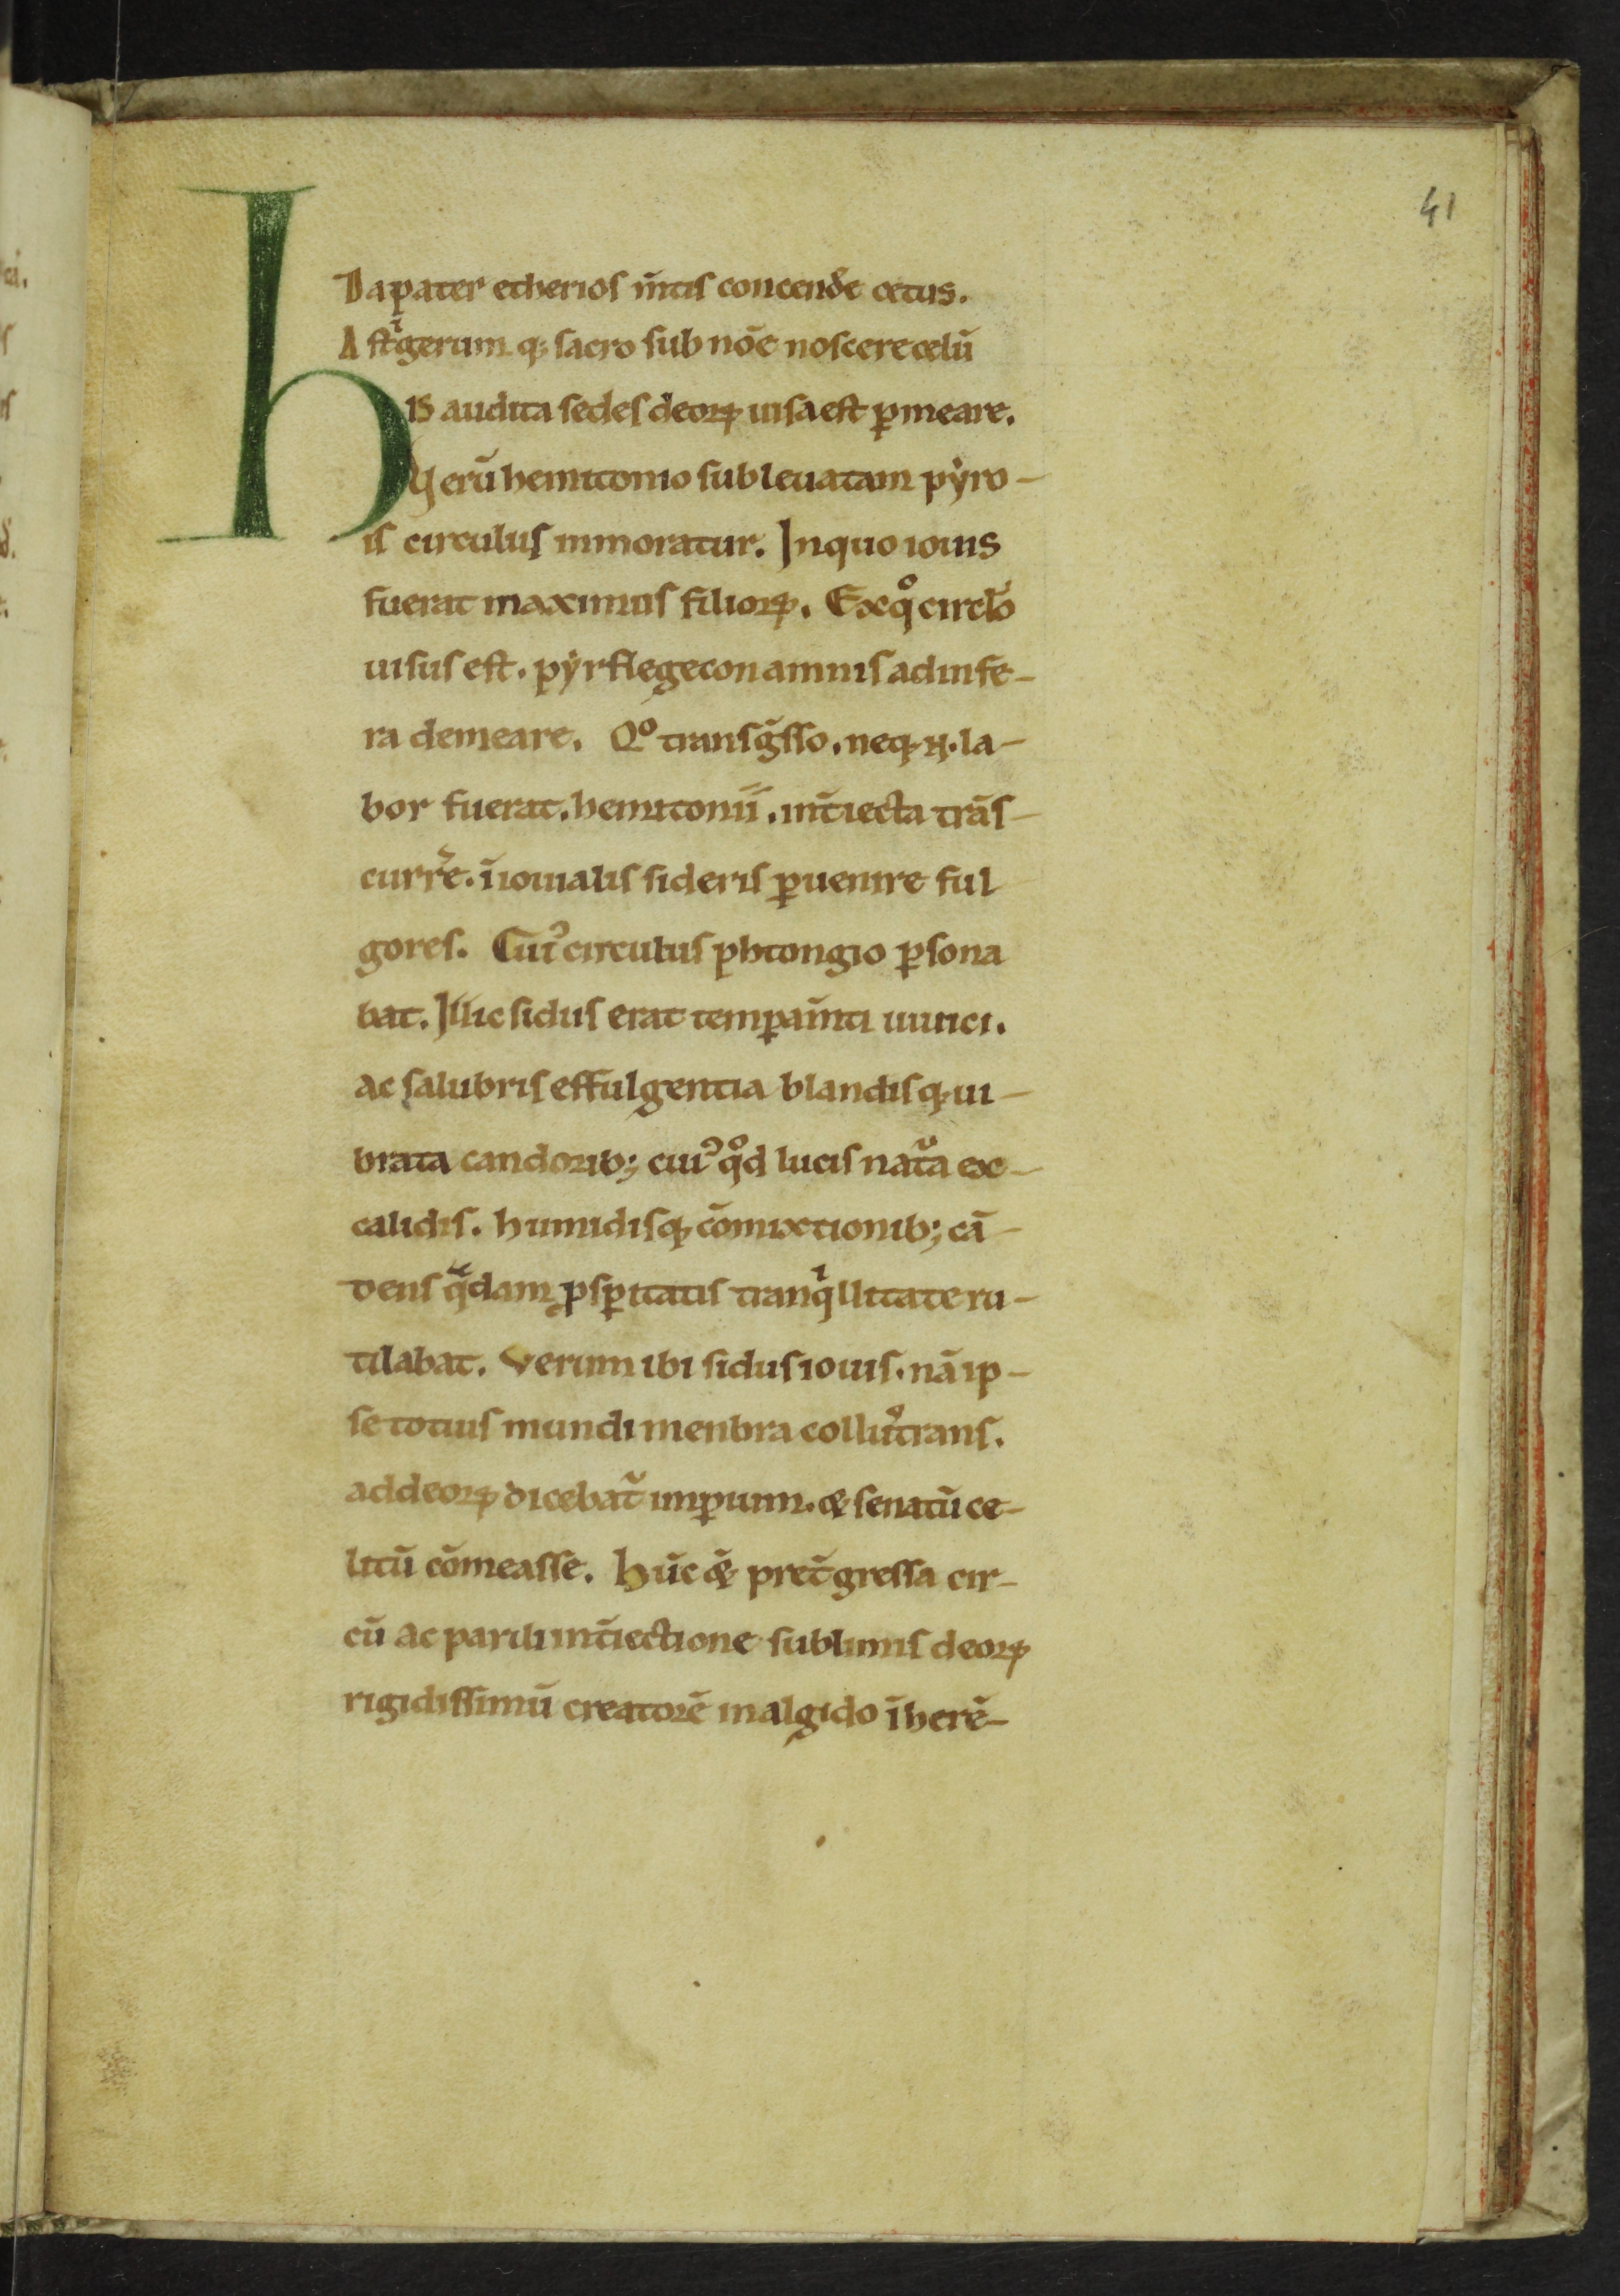 41
Da pater etherios m̄tis concend̄e cetus.
Astⁱgerum q; sacro sub nōe noscere celū
HIS audita sedes deoꝝ uisa est ꝑmeare.
Uerū hemitonio subleuatam pẏro-
is circulus inmoratur. In quo iouis
fuerat maximus filioꝝ. Ex qͦ circl̄o
uisus est. pẏrflegeton amnis ad infe-
ra demeare. Qͦ transg̃sso. neq; n̄. la-
bor fuerat. hemitonii. int̄iecta trās-
curr̄e. ī iouialis sideris ꝑuenire ful
gores. Cuiꝰ circulus phtongio ꝑsona
bat. Illic sidus erat temꝑam̄ti uiuici.
ac salubris effulgentia blandisq; ui-
brata candorib; cuiꝰ qͦd lucis nat̄a ex-
calidis. humidisq; cōmixtionib; cā-
dens q̄dam ꝓsꝑitatis tranqⁱllitate ru-
tilabat. Verum ibi sidus iouis. nā ip-
se totius mundi menbra colluꝰtrans.
ad deoꝝ dicebat̄ imꝑium. & senatū ce-
litū cōmeasse. Hūc & pret̄gressa cir-
cū ac parili int̄iectione sublimis deoꝝ
rigidissimū creatorē in algido īherē-